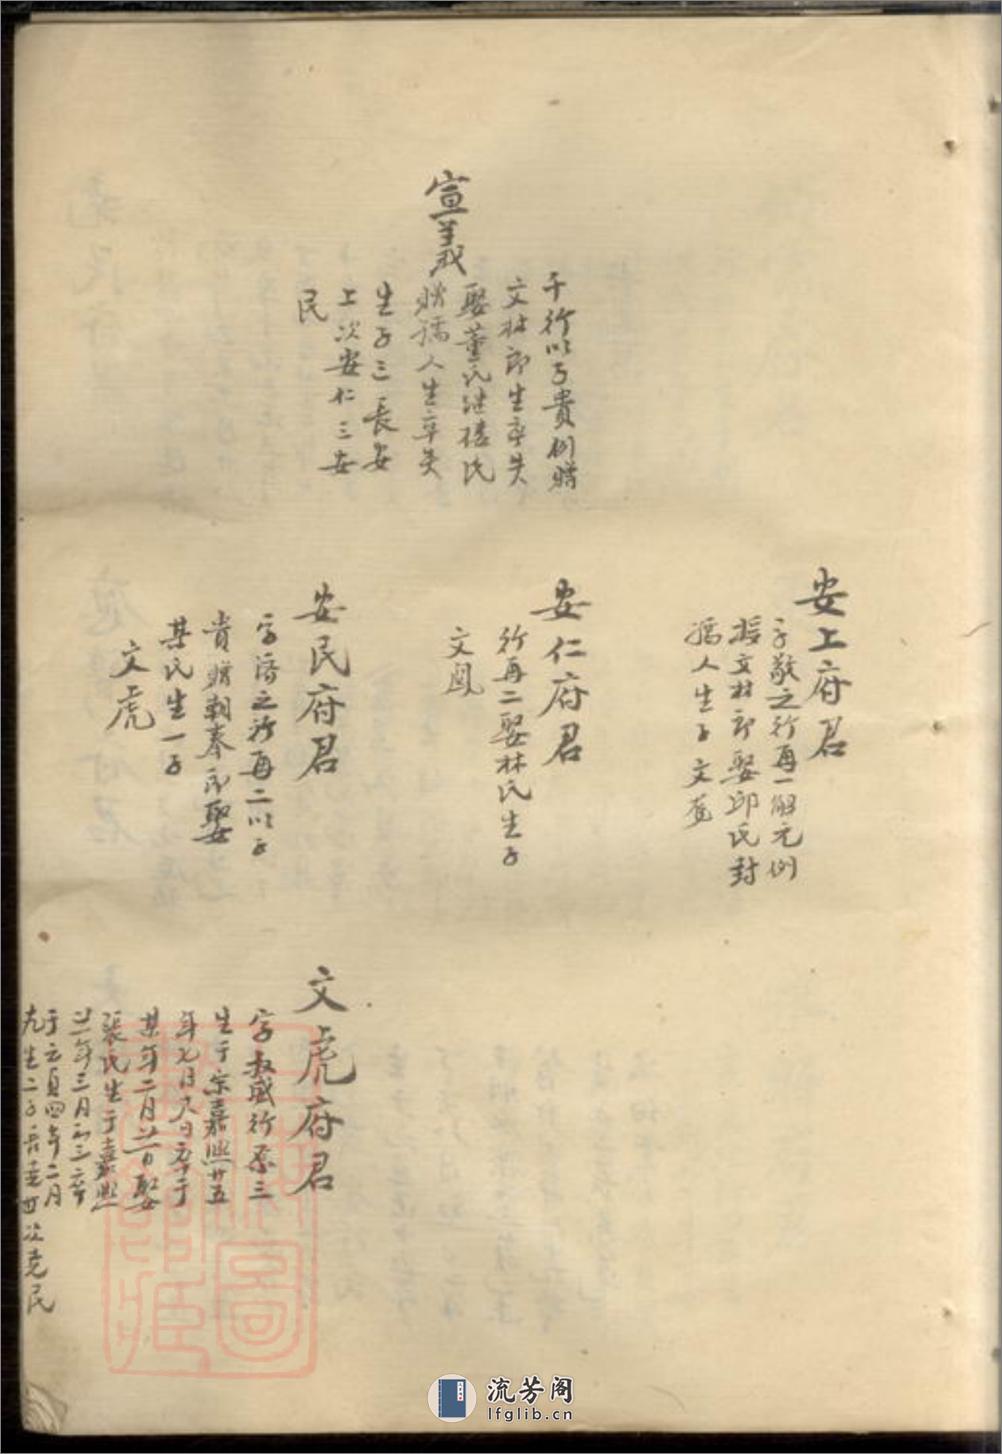 宣義
千行以子貴例贈
文林郎生卒失
娶董氏继楼氏
贈孺人生卒失
生子三長安
上次安仁三安
民
安上府君
字敬之行再一解元例
授文林郎娶邱氏封
孺人生子文
安仁府君
行再二娶林氏生子
文鳳
安民府君
字濟之行再二以子
貴贈朝奉郎娶
某氏生一子
文虎
文虎府君
字叔威行三
生于宗嘉熙廿五
年九月八日卒于
某年二月廿日娶
張氏生于嘉熙
廿一年三月初三卒
于元貞四年二月
生二子長堯次堯民
流芳阁
lfglib.cn